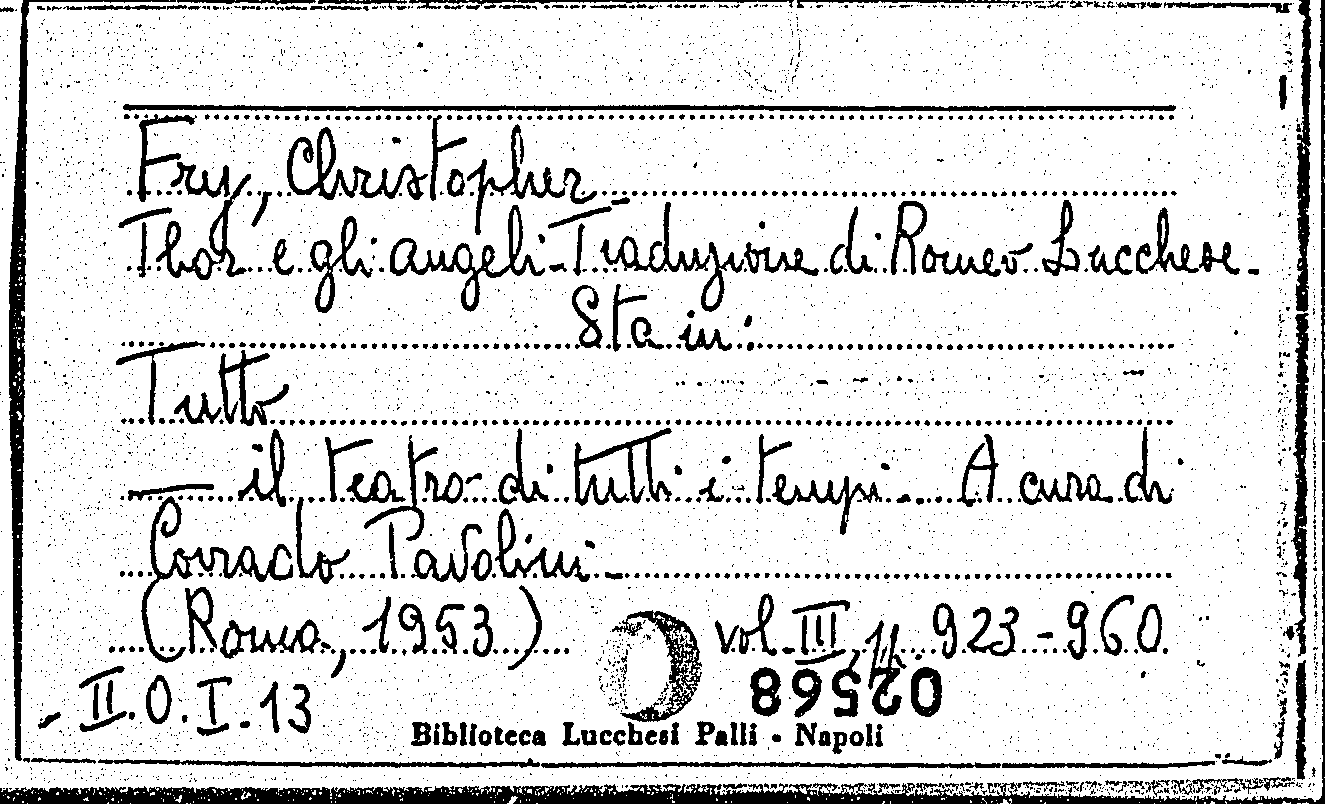 Fry, Christopher -
Thor e gli angeli - Traduzione di Romeo Lucchese -
Sta in:
Tutto
— il teatro di tutti i tempi - A cura di
Corrado Pavolini -
(Roma, 1953) vol. III, pp. 923-960
02568
- II.O.I.13
Biblioteca Lucchesi Palli - Napoli